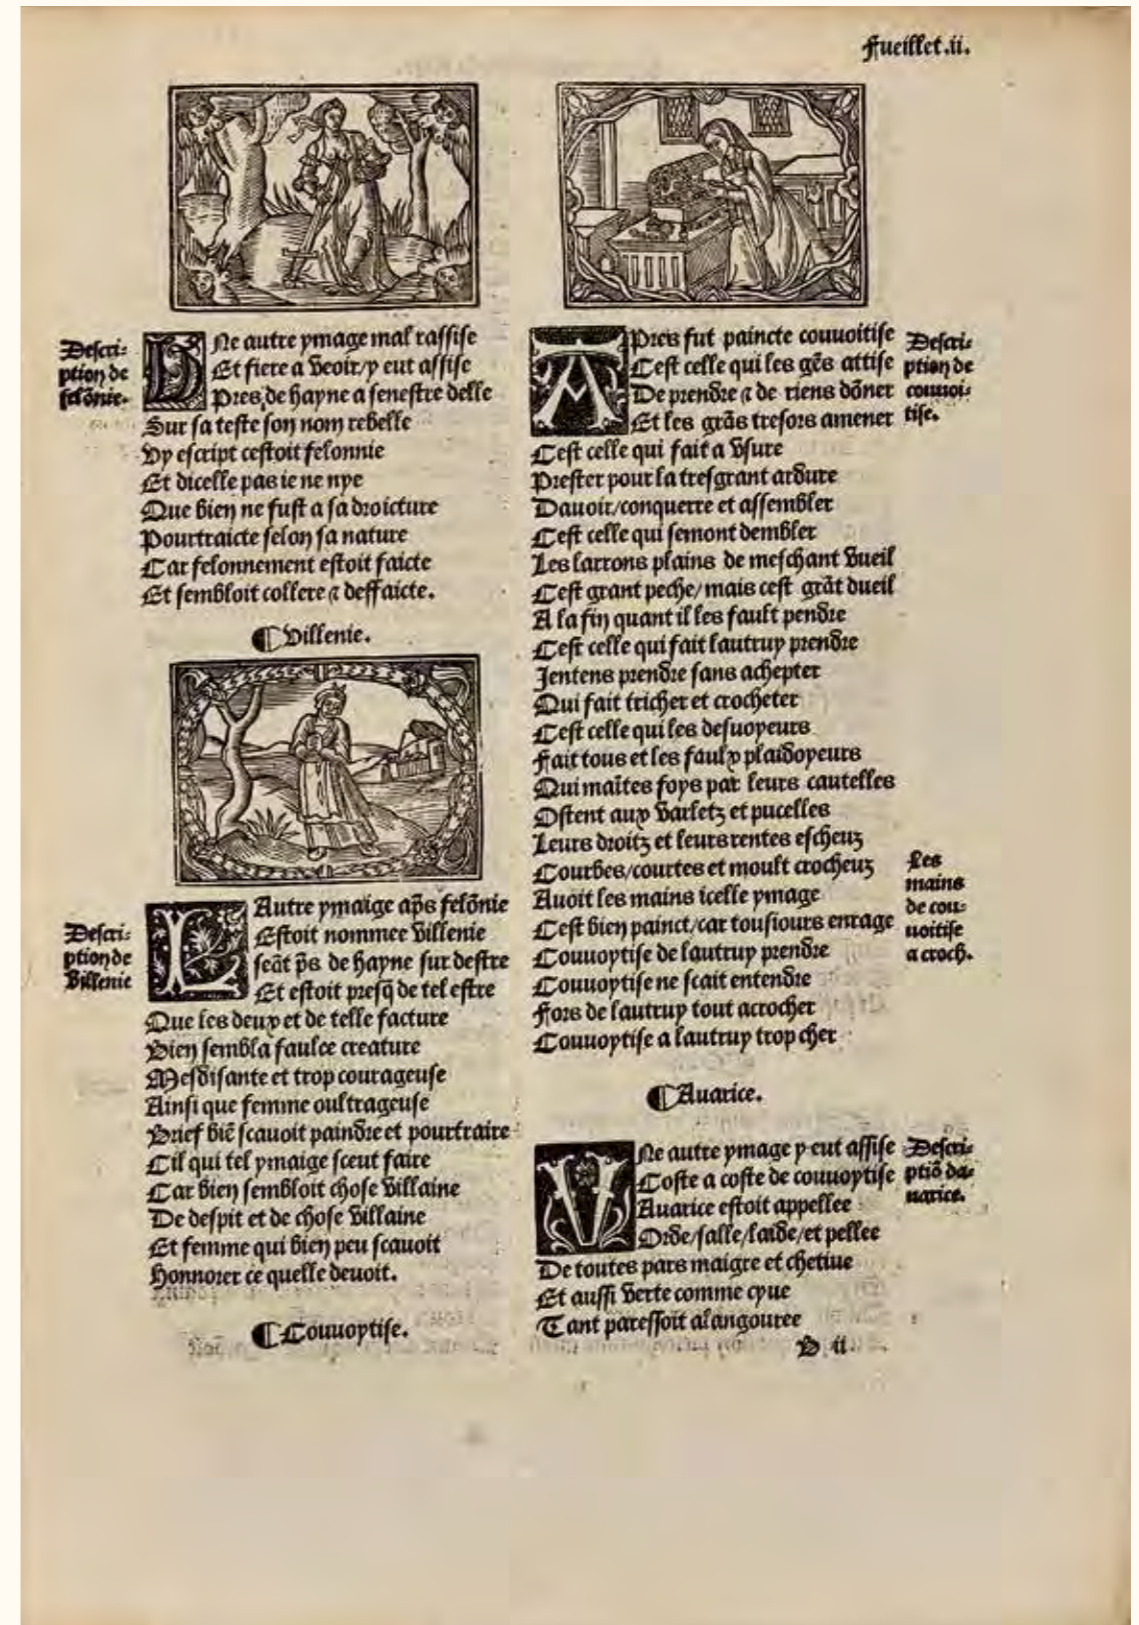 Fueillet.ii.
Descri-
ption de
felõnie.
VNe autre ymage mal rassise
Et fiere a veoir/y eut assise
Pres de hayne a senestre delle
Sur sa teste son nom rebelle
Vy escript cestoit felonnie
Et dicelle pas ie ne nye
Que bien ne fust a sa droicture
Pourtraicte selon sa nature
Car felonnement estoit faicte
Et sembloit collere ⁊ deffaicte.
¶Villenie.
Descri-
ption de
Villenie
LAutre ymaige ap̃s felõnie
Estoit nommee Villenie
seãt p̃s de hayne sur destre
Et estoit presq̃ de tel estre
Que les deux et de telle facture
Bien sembla faulce creature
Mesdisante et trop courageuse
Ainsi que femme oultrageuse
Brief biẽ scauoit paindre et pourtraire
Cil qui tel ymaige sceut faire
Car bien sembloit chose villaine
De despit et de chose villaine
Et femme qui bien peu scauoit
Honnorer ce quelle deuoit.
¶Couuoptise.
APres fut paincte couuoitise
Cest celle qui les gẽs attise
De prendre ⁊ de riens dõner
Et les grãs tresors amener
Cest celle qui fait a vsure
Prester pour la tresgrant ardure
Dauoir/conquerre et assembler
Cest celle qui semont dembler
Les larrons plains de meschant vueil
Cest grant peche/mais cest grãt dueil
A la fin quant il les fault pendre
Cest celle qui fait lautruy prendre
Jentens prendre sans achepter
Qui fait tricher et crocheter
Cest celle qui les desuoyeurs
Fait tous et les faulx plaidoyeurs
Qui maĩtes foys par leurs cautelles
Ostent aux varletz et pucelles
Leurs droitz et leurs rentes escheuz
Courbes/courtes et moult crocheuz
Auoit les mains icelle ymage
Cest bien painct/car tousiours enrage
Couuoptise de lautruy prendre
Couuoptise ne scait entendre
Fors de lautruy tout acrocher
Couuoptise a lautruy trop cher
Descri-
ption de
couuoi-
tise.
Les
mains
de cou-
uoitise
a croch.
¶Auarice.
VNe autre ymage y eut assise
Coste a coste de couuoptise
Auarice estoit appellee
Orde/salle/laide/et pellee
De toutes pars maigre et chetiue
Et aussi verte comme cyue
Tant paressoit alangouree
Descri-
ptiõ da-
uarice.
B ii